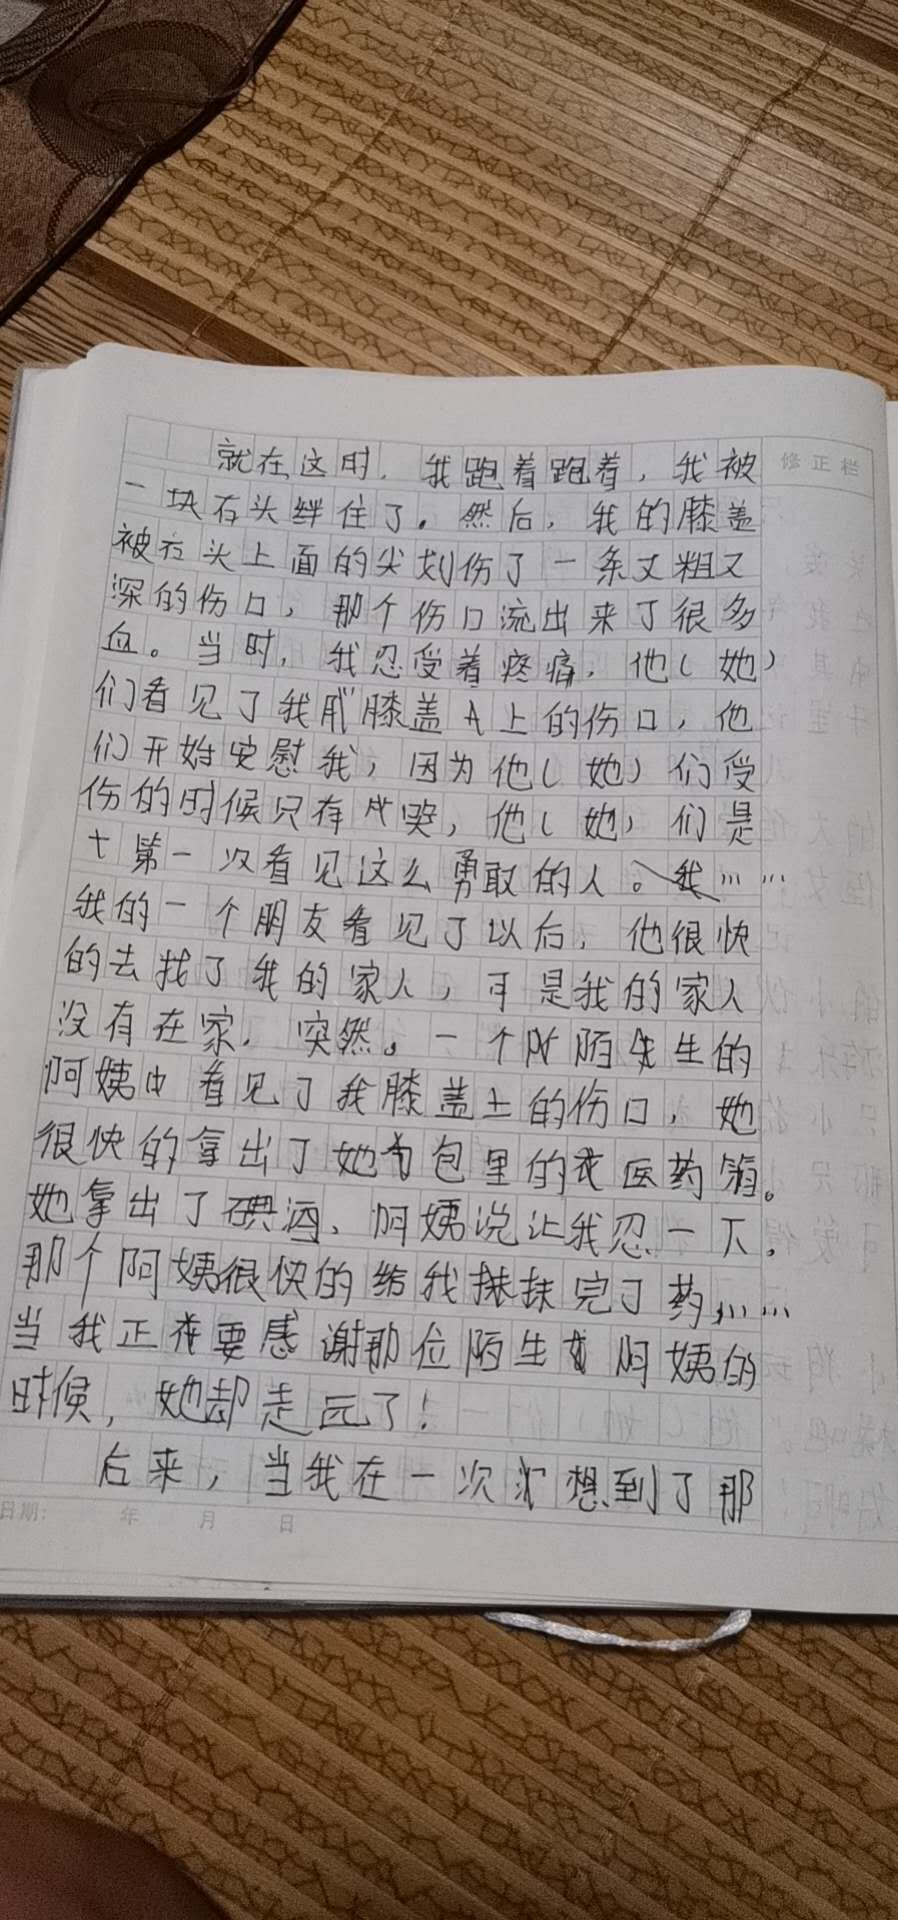 就在这时，我跑着跑着，我被
修正栏
一块石头绊住了。然后，我的膝盖
被石头上面的尖划伤了一条又粗又
深的伤口，那个伤口流出来了很多
血。当时，我忍受着疼痛，他（她）
们看见了我膝盖上的伤口，他
们开始安慰我，因为他（她）们受
伤的时候只有哭，他（她）们是
第一次看见这么勇敢的人。……
我的一个朋友看见了以后，他很快
的去找了我的家人，可是我的家人
没有在家。突然。一个陌生的
阿姨看见了我膝盖上的伤口，她
很快的拿出了她包里的医药箱。
她拿出了碘酒，阿姨说让我忍一下。
那个阿姨很快的给我抹抹完了药……
当我正在要感谢那位陌生阿姨的
时候，她却走远了！
后来，当我在一次想到了那
日期： 年 月 日